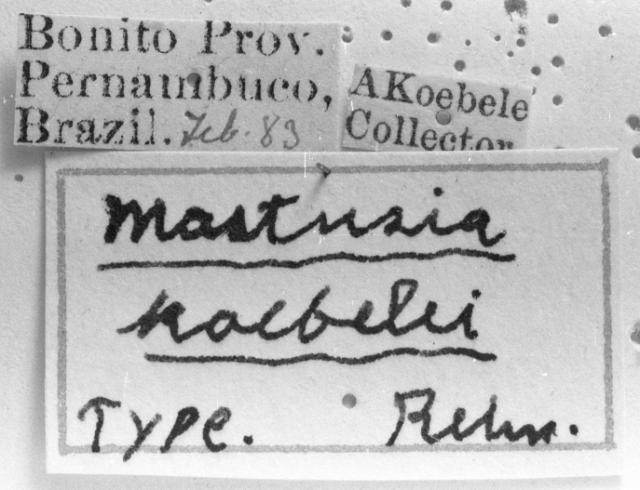 Bonito Prov.
Pernambuco,
Brazil. Feb. 83
AKoebele
Collector
Mastusia
koebelei
Type. Rehn.